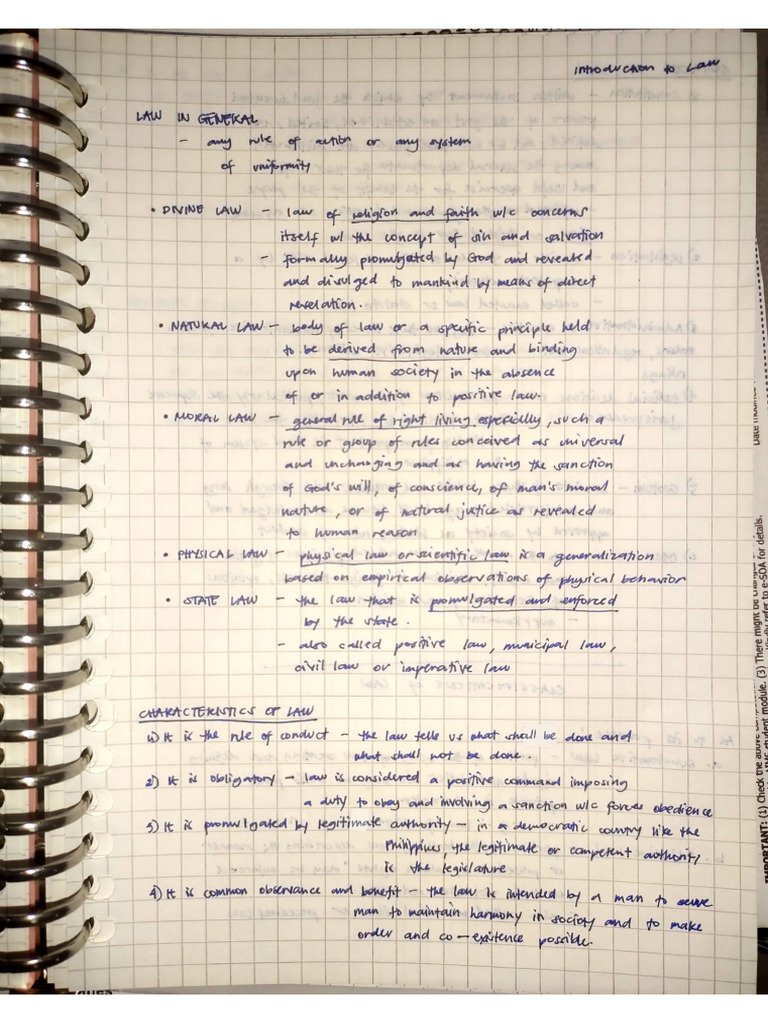 Introduction to Law
LAW IN GENERAL
- any rule of action or any system
of uniformity
• DIVINE LAW - law of religion and faith w/c concerns
itself w/ the concept of sin and salvation
- formally promulgated by God and revealed
and divulged to mankind by means of direct
revelation.
• NATURAL LAW - body of law or a specific principle held
to be derived from nature and binding
upon human society in the absence
of or in addition to positive law.
• MORAL LAW - general rule of right living especially, such a
rule or group of rules conceived as universal
and unchanging and as having the sanction
of God's will, of conscience, of man's moral
nature, or of natural justice as revealed
to human reason
• PHYSICAL LAW - physical law or scientific law is a generalization
based on empirical observations of physical behavior
• STATE LAW - the law that is promulgated and enforced
by the state.
- also called positive law, municipal law,
civil law or imperative law
CHARACTERISTICS OF LAW
1) It is the rule of conduct - the law tells us what shall be done and
what shall not be done.
2) It is obligatory - law is considered a positive command imposing
a duty to obey and involving a sanction w/c forces obedience
3) It is promulgated by legitimate authority - in a democratic country like the
Philippines, the legitimate or competent authority
is the legislature
4) It is common observance and benefit - the law is intended by a man to serve
man to maintain harmony in society and to make
order and co-existence possible.
IMPORTANT: (1) Check the above
student module. (3) There might be
refer to e-SOA for details.